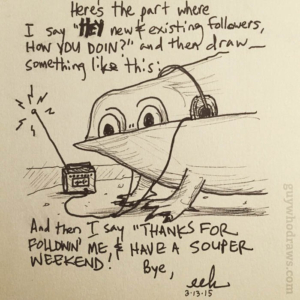 Here's the part where
I say "HEY new & existing followers,
HOW YOU DOIN?" and then draw
something like this:
And then I say "THANKS FOR
FOLLOWIN' ME, & HAVE A SOUPER
WEEKEND!"
Bye,
eeh
3-13-15
guywhodraws.com